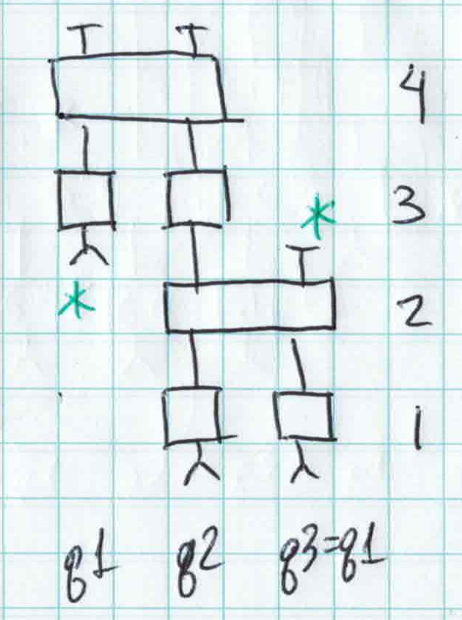 4
* 3
* 2
1
q1 q2 q3=q1